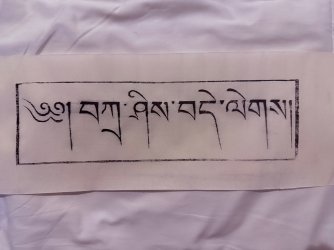 ༄༅། བཀྲ་ཤིས་བདེ་ལེགས།